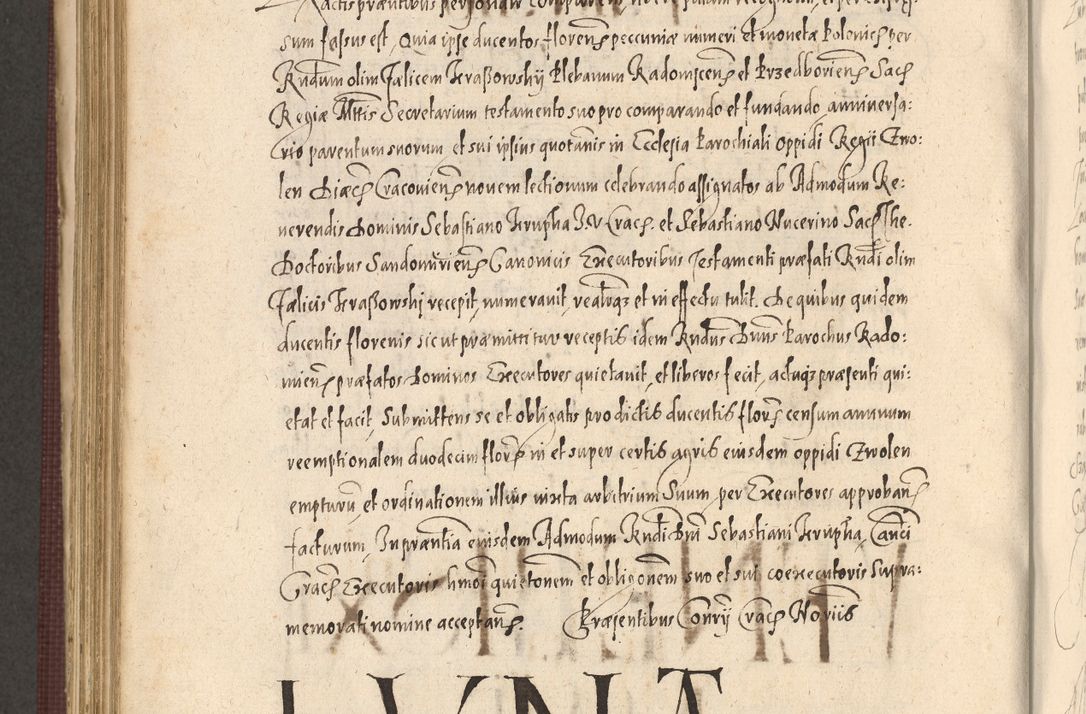 actis præntibus personaliter comparens
sum fassus est, Quia ipse ducentos floren peccuniæ numeri et monetæ Polonich per
Rndum olim Fælicem Kraßowsky Plebanum Radomscen et Przedborien Sac
Regiæ Mttis Secretarium testamento suo pro comparando et fundando anniversa:
rio parentum suorum et sui ipsius quotannis in Ecclesia Parochiali oppidi Regii Zwo:
len Diæc Cracovien novem lectionum celebrando assignatos ab Admodum Re:
verendis Dominis Sebastiano Krupka I.V. Crac. et Sebastiano Nucerino Sac The.
Doctoribus Sandomirien Canonicis Executoribus Testamenti præfati Rndi olim
Fælicis Kraßowski recepit, numeravit, realrqz et in effectu tulit. De quibus quidem
ducentis florenis sic ut præmittitur receptis idem Rndus Dnus Parochus Rado:
mien præfatos Dominos Executores quietavit, et liberos fecit, actuqz præsenti qui:
etat et facit, Submittens se et obligatis pro dictis ducentis flor censum annuum
reemptionalem duodecim flor in et super certis agris eiusdem oppidi Zwolen
empturu, et ordinationem illius iuxta arbitrium Suum, per Executores approban
facturum, In præntia eiusdem Admodum Rndi Dni Sebastiani Krupka, Canci
Crac Executoris hmoi quietonem et obligonem suo et sui coexecutoris supra:
memorati nomine acceptan. Præsentibus Conrij Crac Noriis
LVNÆ